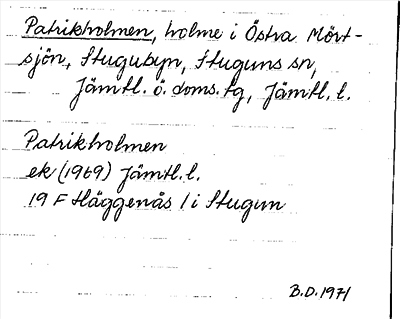 Patrikholmen, holme i Östra Mört-
sjön, Stugubyn, Stuguns sn,
Jämtl. ö. doms. tg, Jämtl. l.
Patrikholmen
ek (1969) Jämtl. l.
19 F Häggenås 1 i Stugun
B.D. 1971